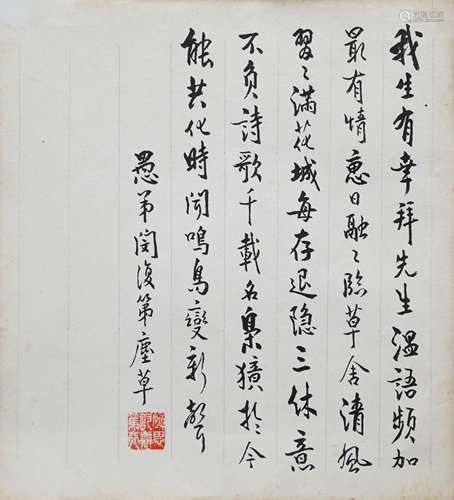 我生有幸拜先生溫語頻加
最有情惠日融〻臨草舍清風
習〻滿花城每存退隱三休意
不負詩歌千載名梟獍於今
能共化時聞鳴鳥變新聲
愚弟閔復第塵草